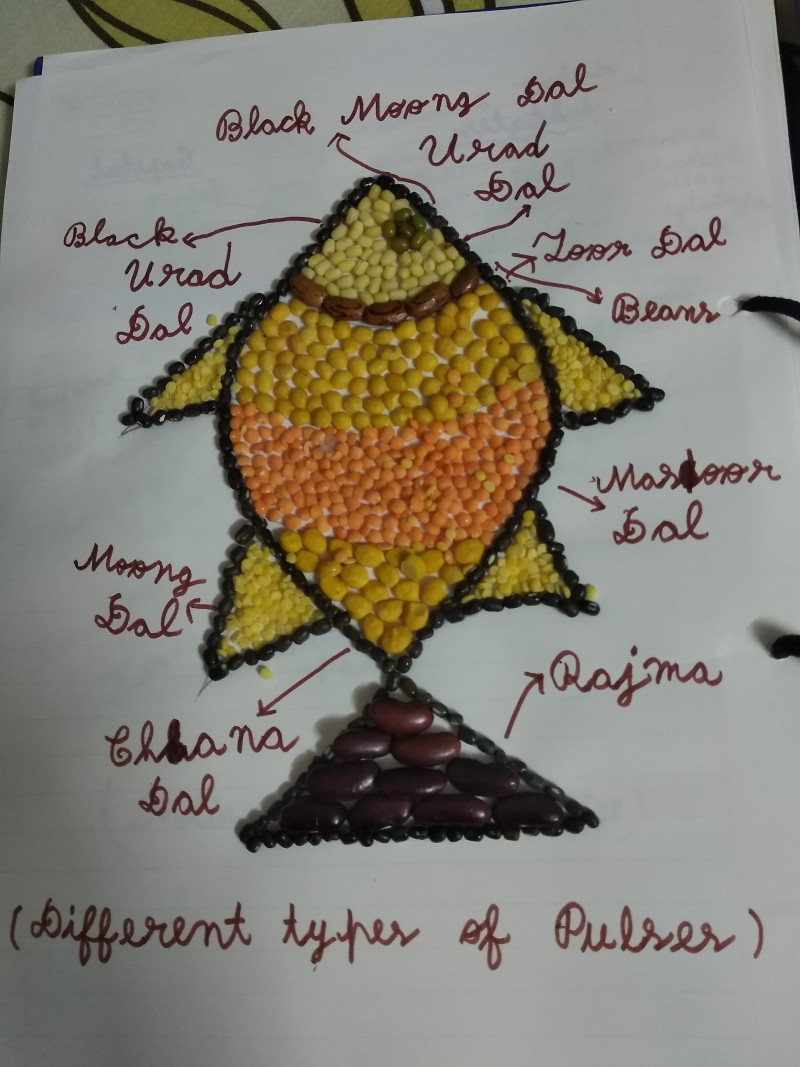 Black Moong Dal
Urad
Dal
Black
Urad
Dal
Toor Dal
Beans
Masoor
Dal
Moong
Dal
Rajma
Chana
Dal
(Different types of Pulses)